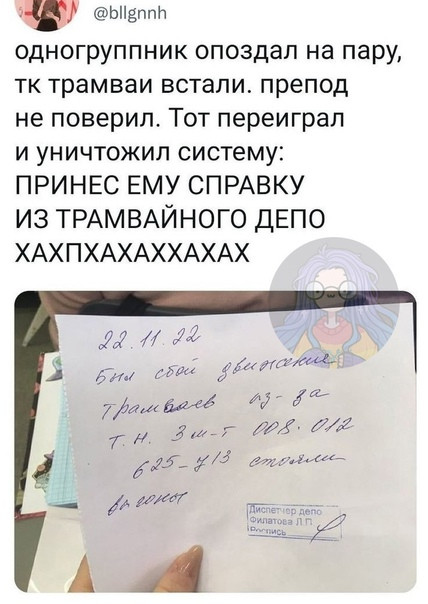 @bllgnnh
одногруппник опоздал на пару,
тк трамваи встали. препод
не поверил. Тот переиграл
и уничтожил систему:
ПРИНЕС ЕМУ СПРАВКУ
ИЗ ТРАМВАЙНОГО ДЕПО
ХАХПХАХАХХАХАХ
22.11.22
Был сбой движение
трамваев из-за
Т.Н. 3 м-т 008. 012
625-713 стояли
вагоны
Диспетчер депо
Филатова Л.П
Роспись